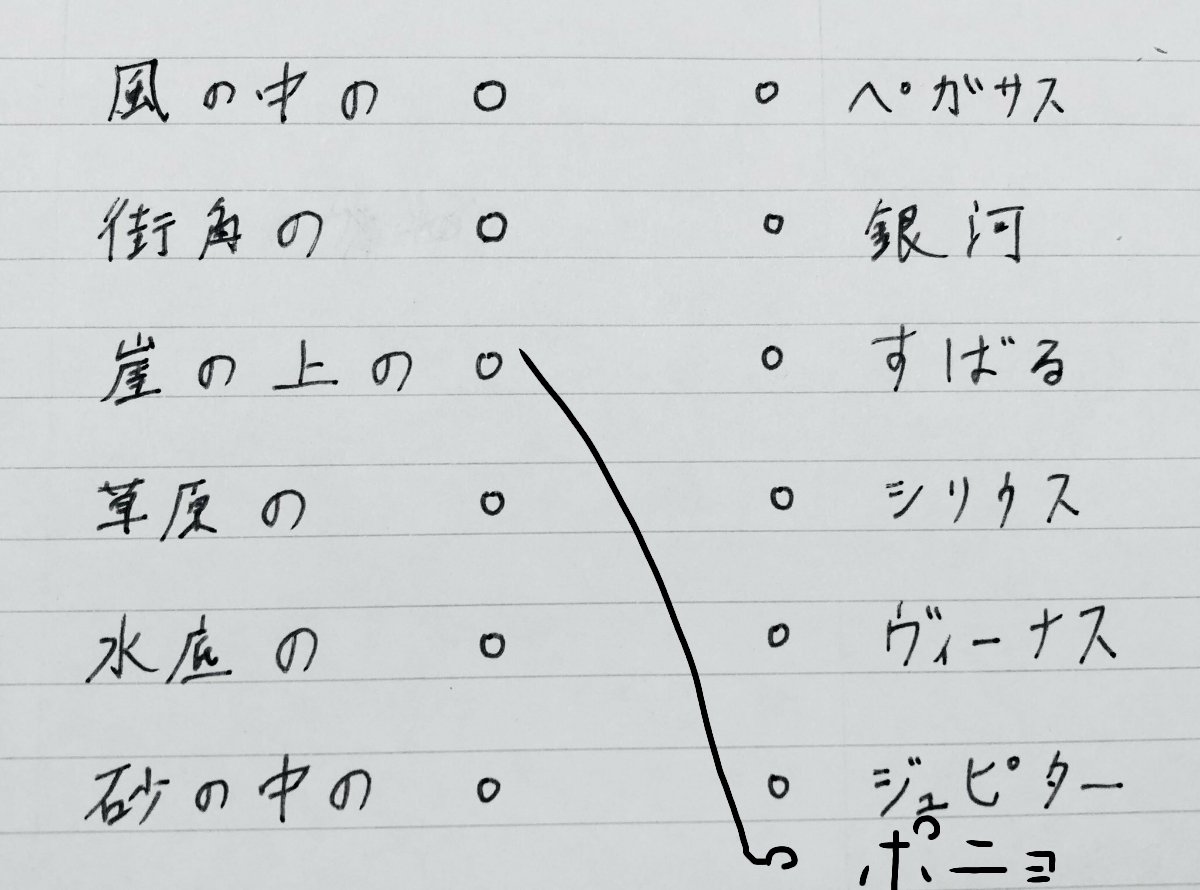 風の中の ○ ○ ペガサス
街角の ○ ○ 銀河
崖の上の ○ ○ すばる
草原の ○ ○ シリウス
水底の ○ ○ ヴィーナス
砂の中の ○ ○ ジュピター
ポニョ